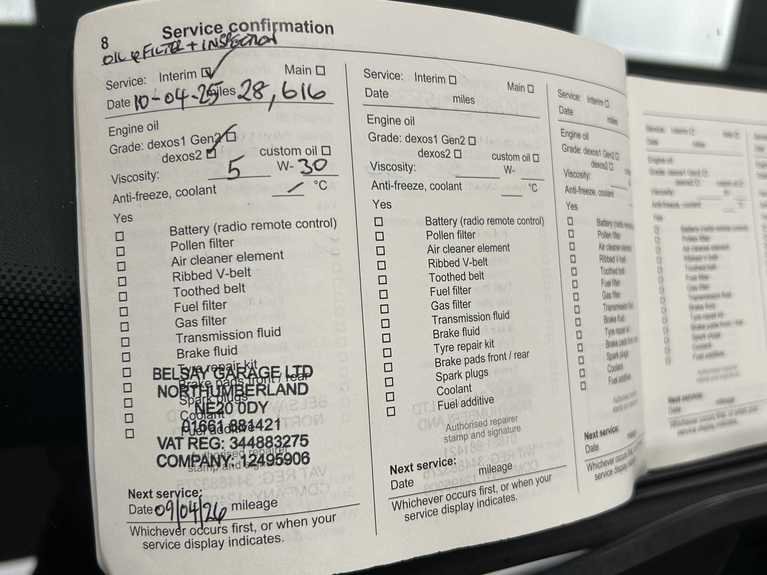 8
Service confirmation
OIL & FILTER + INSPECTION
Service: Interim Main
Date 10-04-25 miles 28,616
Engine oil
Grade: dexos1 Gen2
dexos2 custom oil
Viscosity: 5 W- 30
Anti-freeze, coolant / °C
Yes
Battery (radio remote control)
Pollen filter
Air cleaner element
Ribbed V-belt
Toothed belt
Fuel filter
Gas filter
Transmission fluid
Brake fluid
Tyre repair kit
Brake pads front / rear
Spark plugs
Coolant
Fuel additive
Authorised repairer
stamp and signature
BELSAY GARAGE LTD
NORTHUMBERLAND
NE20 0DY
01661 881421
VAT REG: 344883275
COMPANY: 12495906
Next service:
Date 09/04/26 mileage
Whichever occurs first, or when your
service display indicates.
Service: Interim Main
Date miles
Engine oil
Grade: dexos1 Gen2
dexos2 custom oil
Viscosity: W-
Anti-freeze, coolant °C
Yes
Battery (radio remote control)
Pollen filter
Air cleaner element
Ribbed V-belt
Toothed belt
Fuel filter
Gas filter
Transmission fluid
Brake fluid
Tyre repair kit
Brake pads front / rear
Spark plugs
Coolant
Fuel additive
Authorised repairer
stamp and signature
Next service:
Date mileage
Whichever occurs first, or when your
service display indicates.
Service: Interim
Date miles
Engine oil
Grade: dexos1 Gen2
dexos2
Viscosity:
Anti-freeze, coolant
Yes
Battery (radio
Pollen filter
Air cleaner element
Ribbed V-belt
Toothed belt
Fuel filter
Gas filter
Transmission
Brake fluid
Tyre repair kit
Brake pads
Spark plugs
Coolant
Fuel additive
Authorised
stamp and
Next service:
Date
Whichever occurs first,
service display